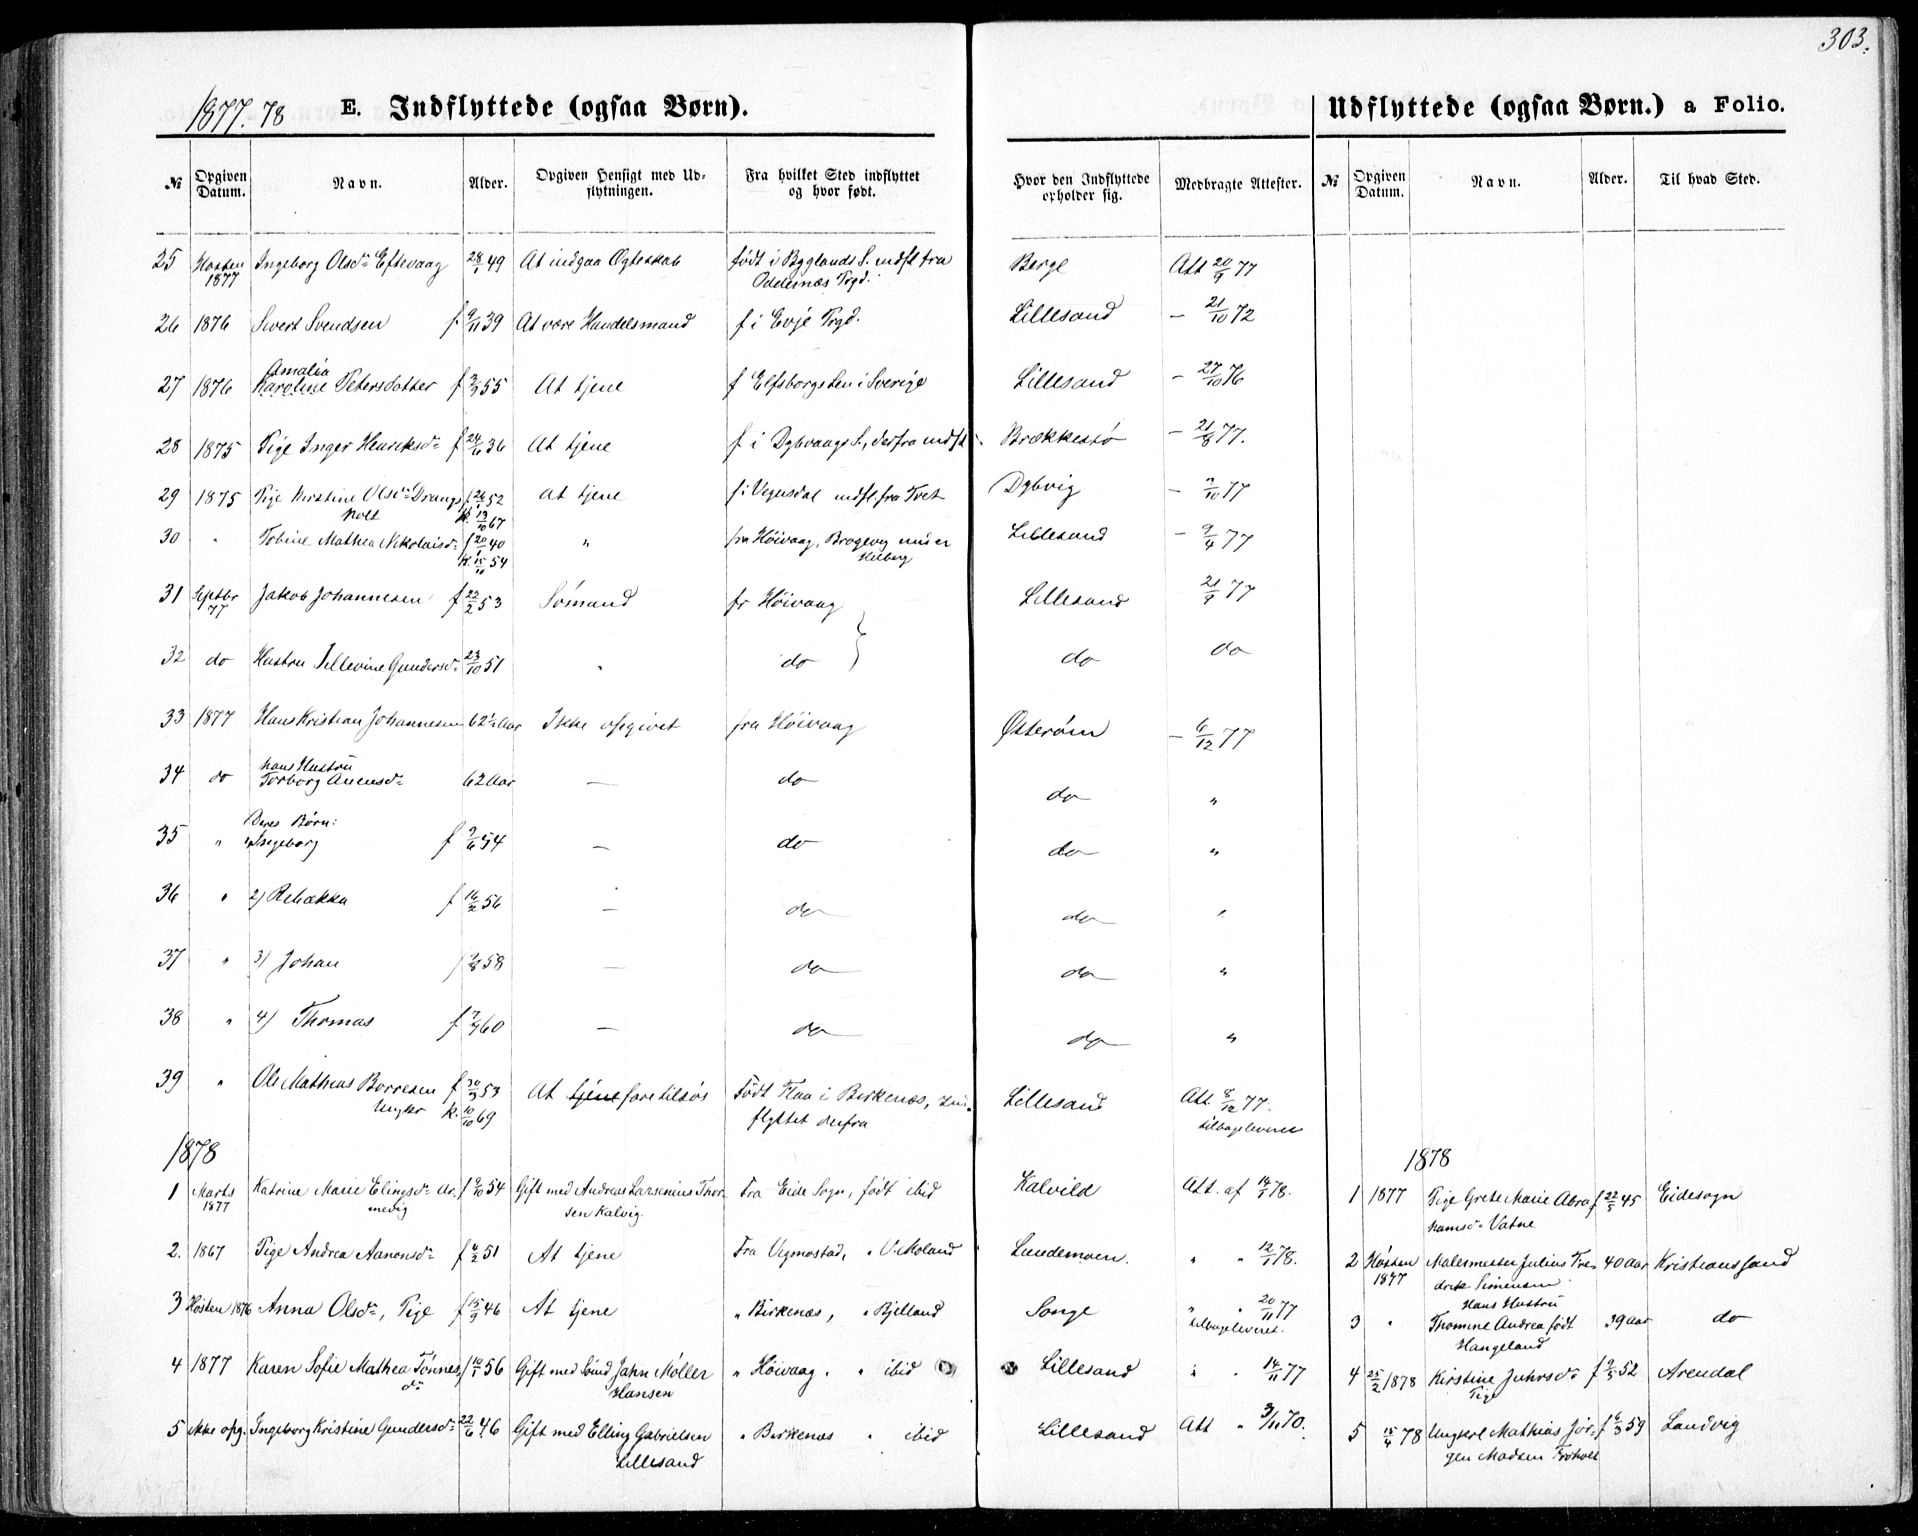 303.
1877.78 E. Indflyttede (ogsaa Børn). Udflyttede (ogsaa Børn.) a Folio.
№ Opgiven Datum. Navn. Alder. Opgiven Hensigt med Udflytningen. Fra hvilket Sted indflyttet og hvor født. Hvor den Indflyttede opholder sig. Medbragte Attester. № Opgiven Datum. Navn. Alder. Til hvad Sted.
25 Høsten 1877 Ingeborg Olsdr Eftevaag 28/1 49 At indgaa Ægteskab født i Bygglands S. indfl fra Oddernæs Prgd. Berge Att 20/9 77
26 1876 Sivert Svendsen f. 9/11 39 At være Handelsmand f i Evje Prgd. Lillesand – 21/10 72
27 1876 Amalia Karoline Petersdatter f 2/3 55 At tjene f Elfsborgs Len i Sverige Lillesand – 27/10 76
28 1875 Pige Inger Henriksdr f 24/6 36 At tjene f i Dybvaags S., derfra indfl. Brækkestø – 21/8 77.
29 1875 Pige Kirstine Olsdr Drangsholt f 26/1 52 k. 13/10 67 At tjene f i Vegusdal indfl. fra Tvet Dybvig – 2/10 77
30 " Tobine Mathea Nikolaisdr f 20/1 40 k. 15/10 54 " fra Høivaag, Lillesand – 9/4 77
31 Septbr 77 Jakob Johannesen f 22/2 53 Sømand fr Høivaag Lillesand 21/9 77
32 do Hustru Tellevine Gundersdr 23/10 51 " do do do
33 1877 Hans Kristian Johannesen 62½ Aar Ikke opgivet fra Høivaag Østerøen – 6/12 77
34 do hans Hustru Torborg Anensdr 62 Aar — do do "
35 " Deres Børn: 1) Ingeborg f 9/6 54 — do do "
36 " 2) Rebækka f 16/2 56 — do do "
37 " 3) Johan f 2/8 58 — do do "
38 " 4) Thomas f 7/9 60 — do do "
39 " Ole Mathias Borresen Ungkr f 30/3 53 k. 10/10 69 At tjene fare tilsøs Født Flaa i Birkenæs, indflyttet derfra Lillesand Att. 8/12 77. tilbageleveret
1878 1878
1 Marts 1877 Katrine Marie Elingsdr Urmevig f 9/10 54 Gift med Andreas Larsenius Thorsen Kalvig. Fra Eide Sogn, født ibid Kalvild Att. af 14/1 78. 1 1877 Pige Grete Marie Abrahamsdr Vatne f 22/5 45 Eidesogn
2. 1867 Pige Andrea Aanonsdr f 4/2 51 At tjene Fra Vegmostad, " V. Moland Lundemoen. " " 12/1 78. 2 Høsten 1877 Malermester Julius Fredrik Simensen 40 Aar Kristianssand
3 Høsten 1876 Anna Olsdr, Pige f 15/9 46 At tjene " Birkenæs, " Bjelland Songe " " 20/11 77 tilbageleveret. 3 " Hans Hustru Thomine Andrea født Hangeland 39 aar do
4 1877 Karen Sofie Mathea Tønnesdr f 10/1 56 Gift med Sømd Jahn Møller Hansen " Høivaag. " ibid Lillesand " " 14/11 77 4 25/2 1878 Kirstine Juhrsdr Pige f 9/5 52 Arendal
5 ikke opg. Ingeborg Kristine Gundersdr 22/6 46 Gift med Elling Gabrielsen Lillesand " Birkenæs " ibid Lillesand Att " 3/11 70. 5 15/4 78 Ungkrl Mathias Jørgen Madsen f 6/3 59 Landvig